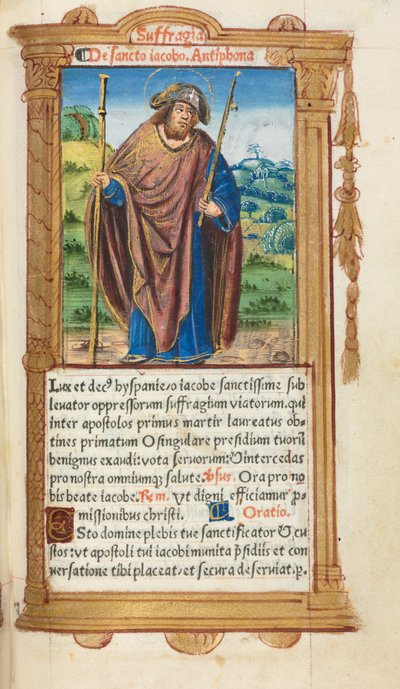 Suffragia
De sancto iacobo. Antiphona
Lux et decꝰ hyspanie/o iacobe sanctissime sub
leuator oppressorum suffragium viatorum. qui
inter apostolos primus martir laureatus ob-
tines primatum O singulare presidium tuorū
benignus exaudi: vota seruorum: & intercedas
pro nostra omniumqꝫ salute. Vsus. Ora pro no
bis beate iacobe. Rem. vt digni efficiamur ꝑ-
missionibus christi. Oratio.
ESto domine plebis tue sanctificator & cu
stos: vt apostoli tui iacobi munita p̄sidiis et con
uersatione tibi placeat, et secura deseruiat. ꝑ.